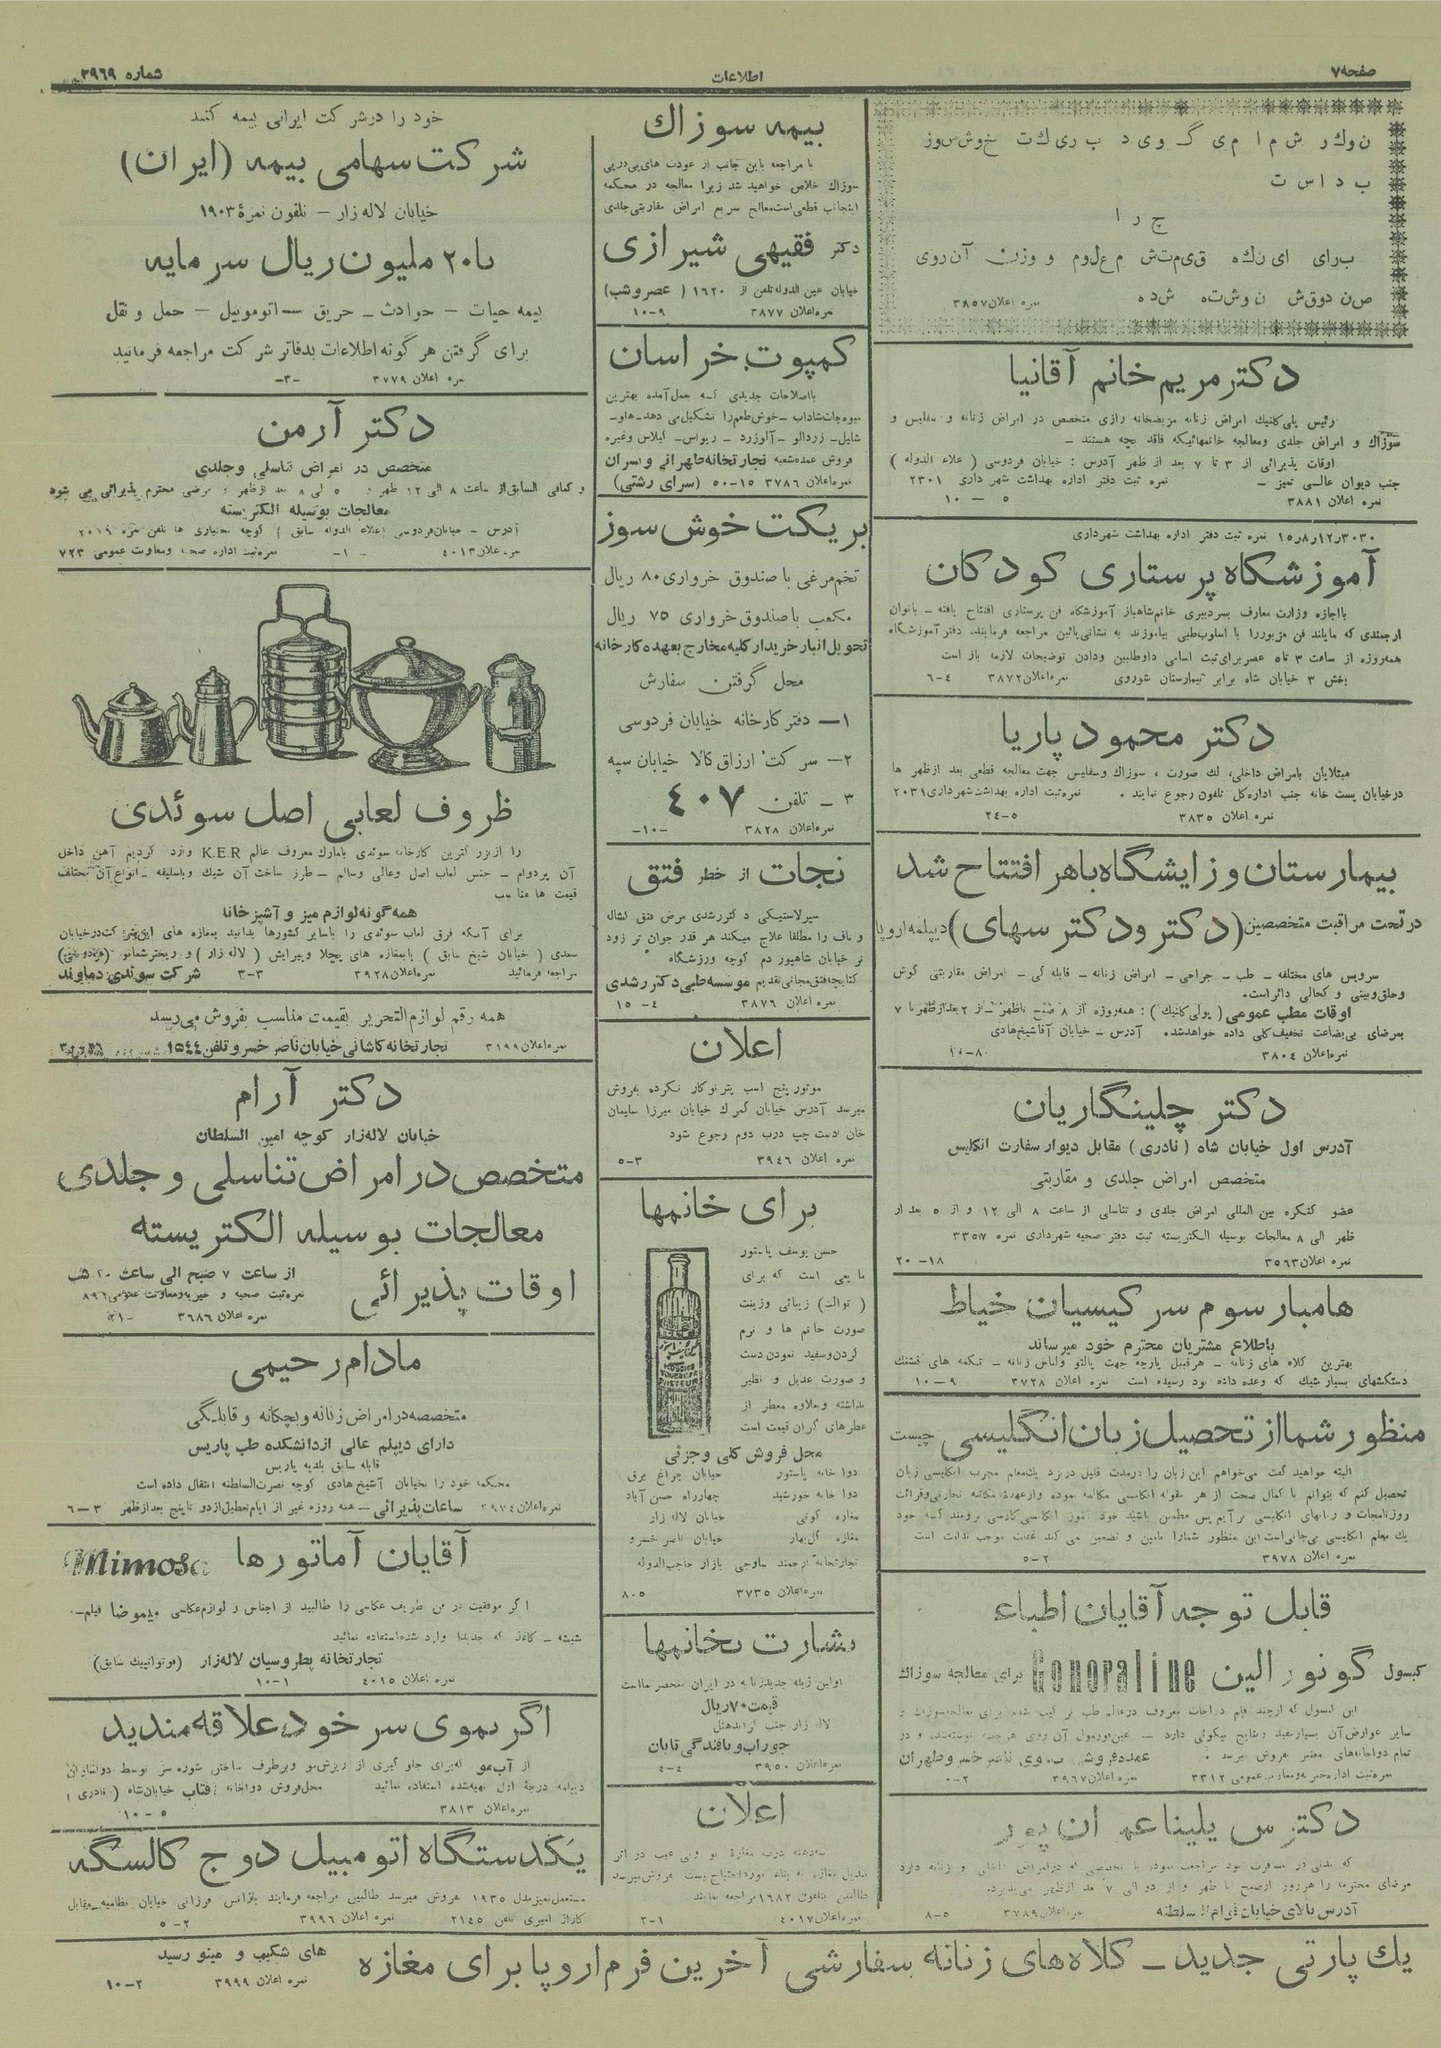 صفحه ۷
اطلاعات
شماره ۳۹۶۹
نوکر شما می گوید بریکت خوش سوز
بد است
چرا
برای اینکه قیمتش معلوم و وزن آن روی
صندوقش نوشته شده
نمره اعلان ۳۹۵۷
دکتر مریم خانم آقانیا
رئیس پلی کلنیک امراض زنانه مریضخانه رازی متخصص در امراض زنانه و سفلیس و
سوزاك و امراض جلدی ومعالجه خانمهائیکه فاقد بچه هستند –
اوقات پذیرائی از ۳ تا ۷ بعد از ظهر آدرس : خیابان فردوسی ( علاء الدوله )
جنب دیوان عالی تمیز – نمره ثبت دفتر اداره بهداشت شهرداری ۲۳۰۱
نمره اعلان ۳۸۸۱ ۵ – ۱۰
نمره ثبت دفتر اداره بهداشت شهرداری
آموزشگاه پرستاری کودکان
بااجازه وزارت معارف بسردبیری خانم شاهباز آموزشگاه فن پرستاری افتتاح یافته – بانوان
ارجمندی که مایلند فن مزبور را با اسلوب طبی بیاموزند به نشانی پائین مراجعه فرمایند. دفتر آموزشگاه
همه روزه از ساعت ۳ تا۵ عصر برای ثبت اسامی داوطلبین ودادن توضیحات لازمه باز است
بخش ۳ خیابان شاه برابر بیمارستان شوروی نمره اعلان ۳۸۷۲ ۴–۶
دکتر محمود پاریا
مبتلایان بامراض داخلی، لك صورت ، سوزاك وسفلیس جهت معالجه قطعی بعد از ظهر ها
درخیابان پست خانه جنب اداره کل تلفون رجوع نمایند . نمره ثبت اداره بهداشت شهرداری ۲۰۳۱
نمره اعلان ۳۸۳۵ ۵–۲۴
بیمارستان و زایشگاه باهر افتتاح شد
در تحت مراقبت متخصصین (دکتر و دکتر سهای) دیپلمه اروپا
سرویس های مختلفه – طب – جراحی – امراض زنانه – قابله گی – امراض مقاربتی گوش
وحلق وبینی و کحالی دائر است.
اوقات مطب عمومی ( پولی کلنیك ) : همه روزه از ۸ صبح تا ظهر – از ۲ بعد از ظهر تا ۷
بمرضای بی بضاعت تخفیف کلی داده خواهد شد. آدرس – خیابان آقا شیخ هادی
نمره اعلان ۳۸۰۴ ۸–۱۰
دکتر چلینگاریان
آدرس اول خیابان شاه ( نادری ) مقابل دیوار سفارت انگلیس
متخصص امراض جلدی و مقاربتی
عضو کنگره بین المللی امراض جلدی و تناسلی از ساعت ۸ الی ۱۲ و از ۵ بعد از
ظهر الی ۸ معالجات بوسیله الکتریسته ثبت دفتر صحیه شهرداری نمره ۳۳۵۷
نمره اعلان ۳۵۶۳ ۱۸–۲۰
هامبار سوم سر کیسیان خیاط
باطلاع مشتریان محترم خود میرساند
بهترین کلاه های زنانه – هر قبیل پارچه جهت پالتو ولباس زنانه – تکمه های قشنك
دستکشهای بسیار شیك که وعده داده بود رسیده است نمره اعلان ۳۷۲۸ ۹–۱۰
منظور شما از تحصیل زبان انگلیسی چیست
البته خواهید گفت می خواهم این زبان را در مدت قلیل در نزد یك معلم مجرب انگلیسی زبان
تحصیل کنم که بتوانم با کمال صحت از هر مقوله انگلیسی مکالمه نموده و از عهده مکاتبه تجارتی و قرائت
یك معلم انگلیسی می جانی است این منظور شما را تامین و تضمین می کند غفلت موجب ندامت است
نمره اعلان ۳۹۷۸ ۲–۵
قابل توجه آقایان اطباء
کپسول گونورالین Gonoraline برای معالجه سوزاك
سایر عوارض آن بسیار مفید و نتایج نیکوئی دارد –
تمام دواخانه های معتبر بفروش میرسد . عمده فروشی ناصر خسرو طهران
نمره اعلان ۳۹۶۷ ۲–۰
مرضای محترمه را هر روز از صبح تا ظهر و از دو الی ۷ بعد از ظهر می پذیرد.
آدرس بالای خیابان قوام السلطنه نمره اعلان ۳۷۸۹ ۵–۸
بیمه سوزاك
با مراجعه باین جانب از عودت های پی در پی
سوزاك خلاص خواهید شد زیرا معالجه در محکمه
اینجانب قطعی است معالج سریع امراض مقاربتی جلدی
دکتر فقیهی شیرازی
خیابان عین الدوله تلفن از ۱۶۲۰ ( عصر وشب)
نمره اعلان ۳۸۷۷ ۹–۱۰
کمپوت خراسان
بااصلاحات جدیدی که بعمل آمده بهترین
میوه جات شاداب – خوش طعم را تشکیل می دهد – هلو –
شلیل – زردآلو – آلوزرد – ریواس – گیلاس وغیره
فروش عمده شعبه تجارتخانه طهرانی و پسران
نمره اعلان ۳۷۸۶ ۱۵–۵۰ (سرای رشتی)
بریکت خوش سوز
تخم مرغی با صندوق خرواری ۸۰ ریال
مکعب با صندوق خرواری ۷۵ ریال
تحویل انبار خریدار کلیه مخارج بعهده کارخانه
محل گرفتن سفارش
۱– دفتر کارخانه خیابان فردوسی
۲– شرکت ارزاق کالا خیابان سپه
۳ – تلفن ۴۰۷
نمره اعلان ۳۸۲۸ –۱۰–
نجات از خطر فتق
سپر لاستیکی دکتر رشدی مرض فتق کشاله
و ناف را مطلقا علاج میکند هر قدر جوان تر زود
تر خیابان شاهپور دم کوچه ورزشگاه
کتابچه فتق مجانی تقدیم موسسه طبی دکتر رشدی
نمره اعلان ۳۸۷۶ ۴–۱۵
اعلان
موتور پنج اسب پترنو کار نکرده بفروش
میرسد آدرس خیابان گمرك خیابان میرزا سلیمان
خان دست چپ درب دوم رجوع شود
نمره اعلان ۳۹۴۶ ۳–۵
برای خانمها
حسن یوسف پاستور
مایعی است که برای
( توالت) زیبائی وزینت
صورت خانم ها و نرم
کردن وسفید نمودن دست
و صورت عدیل و نظیر
نداشته وبعلاوه معطر از
عطرهای گران قیمت است
محل فروش کلی وجزئی
دوا خانه پاستور خیابان چراغ برق
دوا خانه خورشید چهارراه حسن آباد
مغازه کوتی خیابان لاله زار
مغازه گل بهار خیابان ناصر خسرو
تجارتخانه ارجمند ساوجی بازار حاجب الدوله
نمره اعلان ۳۷۳۵ ۵–۸
بشارت بخانمها
قیمت ۷۰ ریال
جوراب و بافندگی تابان
نمره اعلان ۳۹۵۰ ۴–۴
اعلان
طالبین بتلفون ۱۶۸۲ مراجعه نمایند
نمره اعلان ۴۰۱۷ ۱–۲
خود را در شرکت ایرانی بیمه کنید
شرکت سهامی بیمه (ایران)
خیابان لاله زار – تلفون نمرهٔ ۱۹۰۳
با ۲۰ ملیون ریال سرمایه
بیمه حیات – حوادث – حریق – اتوموبیل – حمل و نقل
برای گرفتن هر گونه اطلاعات بدفاتر شرکت مراجعه فرمائید
نمره اعلان ۳۷۷۹ –۳–
دکتر آرمن
متخصص در امراض تناسلی و جلدی
و کمافی السابق از ساعت ۸ الی ۱۲ ظهر و ۵ الی ۸ بعد از ظهر از مرضی محترم پذیرائی می شود
معالجات بوسیله الکتریسته
آدرس – خیابان فردوسی ( علاء الدوله سابق ) کوچه بختیاری ها تلفن نمره ۲۰۱۹
نمره اعلان ۴۰۱۳ –۱– نمره ثبت اداره صحیه ومعاونت عمومی ۷۲۳
ظروف لعابی اصل سوئدی
را از بزرگترین کارخانه سوئدی بامارك معروف عالم K.E.R وارد کردیم آهن داخل
آن پردوام – جنس لعاب اصل وعالی وسالم – طرز ساخت آن شیك و باسلیقه – انواع آن مختلف
قیمت ها مناسب
همه گونه لوازم میز و آشپزخانه
برای آنکه فرق لعاب سوئدی را باسایر کشورها بدانید بمغازه های این شرکت در خیابان
سعدی ( خیابان شیخ سابق ) یا بمغازه های پیچلا و پیرایش ( لاله زار ) و ریختر شمانو (فردوسی)
مراجعه فرمائید نمره اعلان ۳۹۲۸ ۳–۳ شرکت سوئدی دماوند
همه رقم لوازم التحریر بقیمت مناسب بفروش می رسد
نمره اعلان ۳۱۹۹ تجارتخانه کاشانی خیابان ناصر خسرو تلفن ۱۵۴۴
دکتر آرام
خیابان لاله زار کوچه امین السلطان
متخصص در امراض تناسلی و جلدی
معالجات بوسیله الکتریسته
اوقات پذیرائی از ساعت ۷ صبح الی ساعت ۱۰ شب
نمره ثبت صحیه و خیریه ومعاونت عمومی ۸۹۶
نمره اعلان ۳۶۸۶
مادام رحیمی
متخصصه در امراض زنانه و بچگانه و قابلگی
دارای دیپلم عالی از دانشکده طب پاریس
قابله سابق بلدیه پاریس
محکمه خود را بخیابان آشیخ هادی کوچه نصرت السلطنه انتقال داده است
نمره اعلان ۳۹۷۴ ساعات پذیرائی – همه روزه غیر از ایام تعطیل از دو تا پنج بعد از ظهر ۳–۶
آقایان آماتورها Mimosa
اگر موفقیت در فن ظریف عکاسی را طالبید از اجناس و لوازم عکاسی میموضا فیلم –
شیشه – کاغذ که جدیدا وارد شده استفاده نمائید
تجارتخانه پطروسیان لاله زار
نمره اعلان ۴۰۱۵ ۱–۱۰
اگر بموی سر خود علاقه مندید
از آب مو که برای جلو گیری از ریزش مو وبرطرف ساختن شوره سر توسط دواسازان
دیپلمه درجهٔ اول تهیه شده استفاده نمائید محل فروش دواخانه آفتاب خیابان شاه ( نادری )
نمره اعلان ۳۸۱۳ ۵ – ۱۰
یکدستگاه اتومبیل دوج کالسگه
مستعمل تمیز مدل ۱۹۳۵ بفروش میرسد طالبین مراجعه فرمایند بآژانس فرزانی خیابان نظامیه – مقابل
گاراژ امیری تلفن ۲۱۴۵ نمره اعلان ۳۹۹۶ ۲–۵
یك پارتی جدید – کلاه های زنانه سفارشی آخرین فرم اروپا برای مغازه
های شکیب و مینو رسید
نمره اعلان ۳۹۹۹ ۲–۱۰